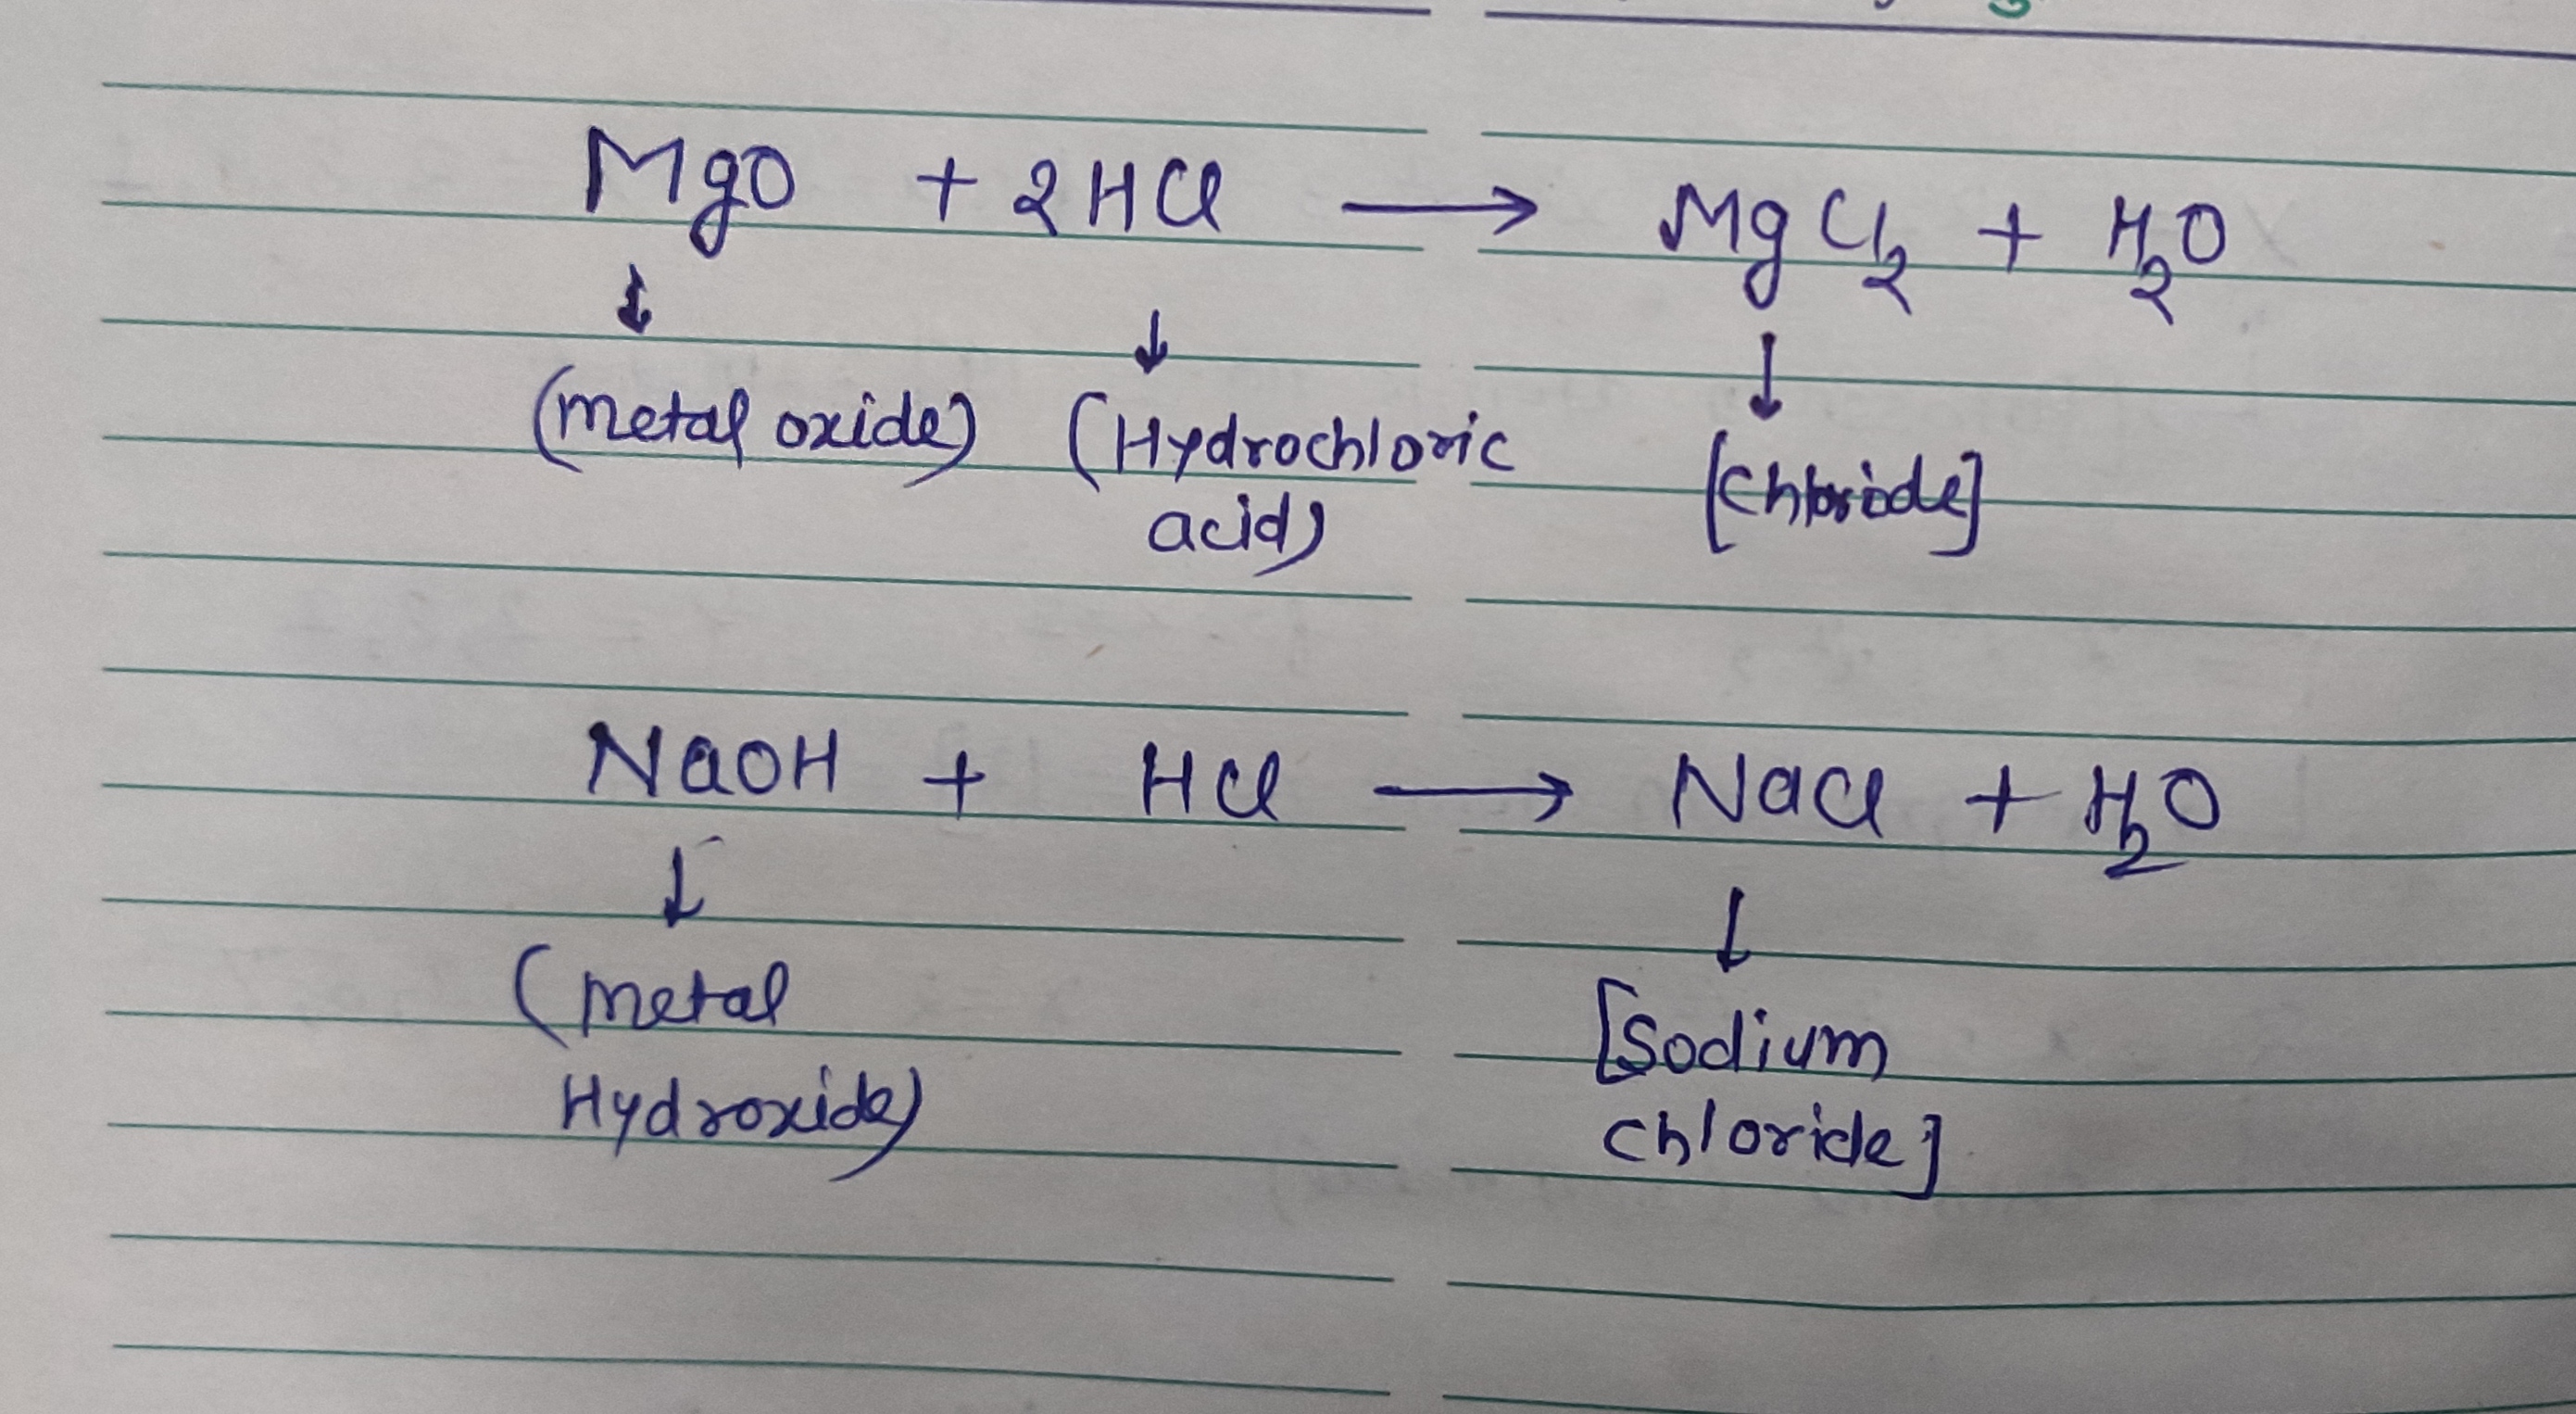 MgO + 2HCl → MgCl₂ + H₂O
↓ ↓ ↓
(Metal oxide) (Hydrochloric acid) [Chloride]
NaOH + HCl → NaCl + H₂O
↓ ↓
(Metal Hydroxide) [Sodium chloride]